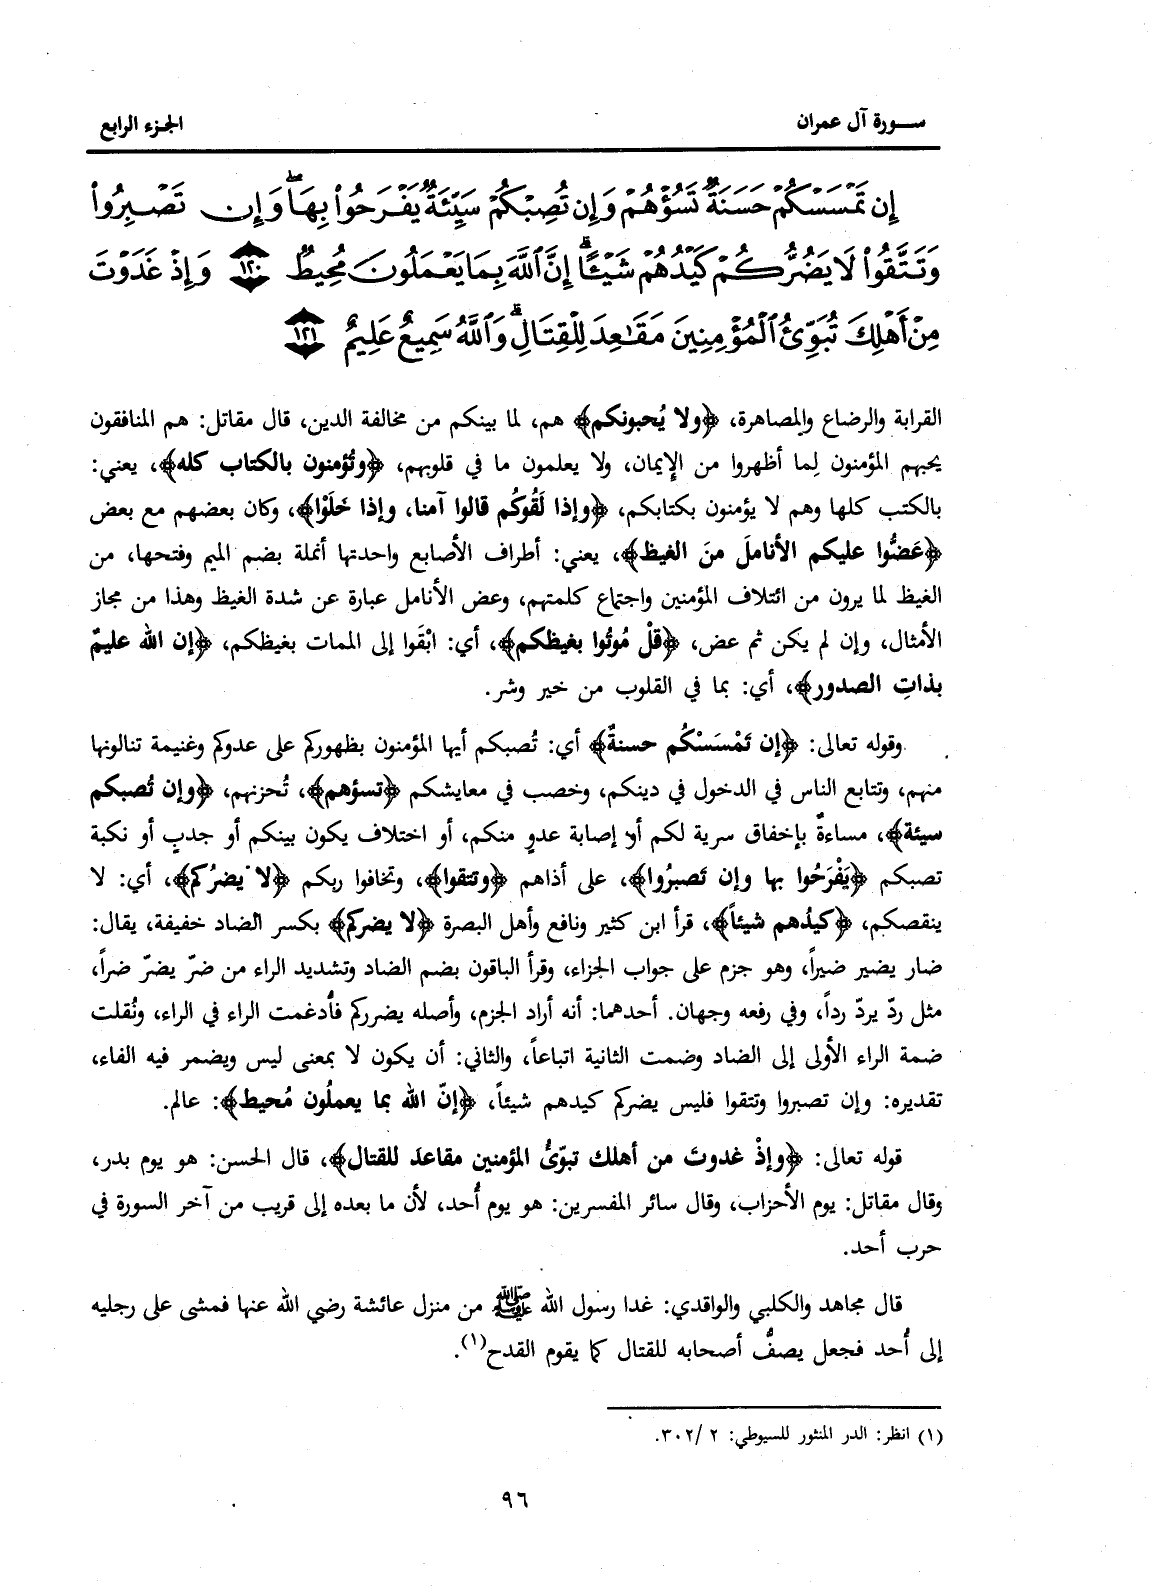 سورة آل عمران
الجزء الرابع
إِن تَمْسَسْكُمْ حَسَنَةٌ تَسُؤْهُمْ وَإِن تُصِبْكُمْ سَيِّئَةٌ يَفْرَحُوا۟ بِهَا ۖ وَإِن تَصْبِرُوا۟
وَتَتَّقُوا۟ لَا يَضُرُّكُمْ كَيْدُهُمْ شَيْـًٔا ۗ إِنَّ ٱللَّهَ بِمَا يَعْمَلُونَ مُحِيطٌ ١٢٠ وَإِذْ غَدَوْتَ
مِنْ أَهْلِكَ تُبَوِّئُ ٱلْمُؤْمِنِينَ مَقَـٰعِدَ لِلْقِتَالِ ۗ وَٱللَّهُ سَمِيعٌ عَلِيمٌ ١٢١
القرابة والرضاع والمصاهرة، ﴿ولا يُحبونكم﴾ هم، لما بينكم من مخالفة الدين، قال مقاتل: هم المنافقون
يحبهم المؤمنون لِما أظهروا من الإيمان، ولا يعلمون ما في قلوبهم، ﴿وتُؤمنون بالكتاب كله﴾، يعني:
بالكتب كلها وهم لا يؤمنون بكتابكم، ﴿وإذا لَقُوكُم قالوا آمنا، وإذا خَلَوْا﴾، وكان بعضهم مع بعض
﴿عَضُّوا عليكم الأناملَ منَ الغيظ﴾، يعني: أطراف الأصابع واحدتها أنملة بضم الميم وفتحها، من
الغيظ لما يرون من ائتلاف المؤمنين واجتماع كلمتهم، وعض الأنامل عبارة عن شدة الغيظ وهذا من مجاز
الأمثال، وإن لم يكن ثم عض، ﴿قلْ مُوتُوا بغيظكم﴾، أي: ابْقَوا إلى الممات بغيظكم، ﴿إن الله عليمٌ
بذاتِ الصدور﴾، أي: بما في القلوب من خير وشر.
وقوله تعالى: ﴿إن تَمْسَسْكُم حسنةٌ﴾ أي: تُصبكم أيها المؤمنون بظهوركم على عدوكم وغنيمة تنالونها
منهم، وتتابع الناس في الدخول في دينكم، وخصب في معايشكم ﴿تسؤهم﴾، تُحزنهم، ﴿وإن تُصبكم
سيئة﴾، مساءةٌ بإخفاق سرية لكم أو إصابة عدوٍ منكم، أو اختلاف يكون بينكم أو جدبٍ أو نكبة
تصبكم ﴿يَفْرَحُوا بها وإن تَصبرُوا﴾، على أذاهم ﴿وتتقوا﴾، وتخافوا ربكم ﴿لا يضرُكم﴾، أي: لا
ينقصكم، ﴿كيدُهم شيئاً﴾، قرأ ابن كثير ونافع وأهل البصرة ﴿لا يضركم﴾ بكسر الضاد خفيفة، يقال:
ضار يضير ضيراً، وهو جزم على جواب الجزاء، وقرأ الباقون بضم الضاد وتشديد الراء من ضرّ يضرّ ضراً،
مثل ردّ يردّ رداً، وفي رفعه وجهان. أحدهما: أنه أراد الجزم، وأصله يضرركم فأُدغمت الراء في الراء، ونُقلت
ضمة الراء الأولى إلى الضاد وضمت الثانية اتباعاً، والثاني: أن يكون لا بمعنى ليس ويضمر فيه الفاء،
تقديره: وإن تصبروا وتتقوا فليس يضركم كيدهم شيئاً، ﴿إنّ الله بما يعملُون مُحيط﴾: عالم.
قوله تعالى: ﴿وإذْ غدوتَ من أهلك تبوّئُ المؤمنين مقاعدَ للقتال﴾، قال الحسن: هو يوم بدر،
وقال مقاتل: يوم الأحزاب، وقال سائر المفسرين: هو يوم أُحد، لأن ما بعده إلى قريب من آخر السورة في
حرب أحد.
قال مجاهد والكلبي والواقدي: غدا رسول الله ﷺ من منزل عائشة رضي الله عنها فمشى على رجليه
إلى أُحد فجعل يصفُّ أصحابه للقتال كما يقوم القدح(١).
(١) انظر: الدر المنثور للسيوطي: ٢ /٣٠٢.
٩٦